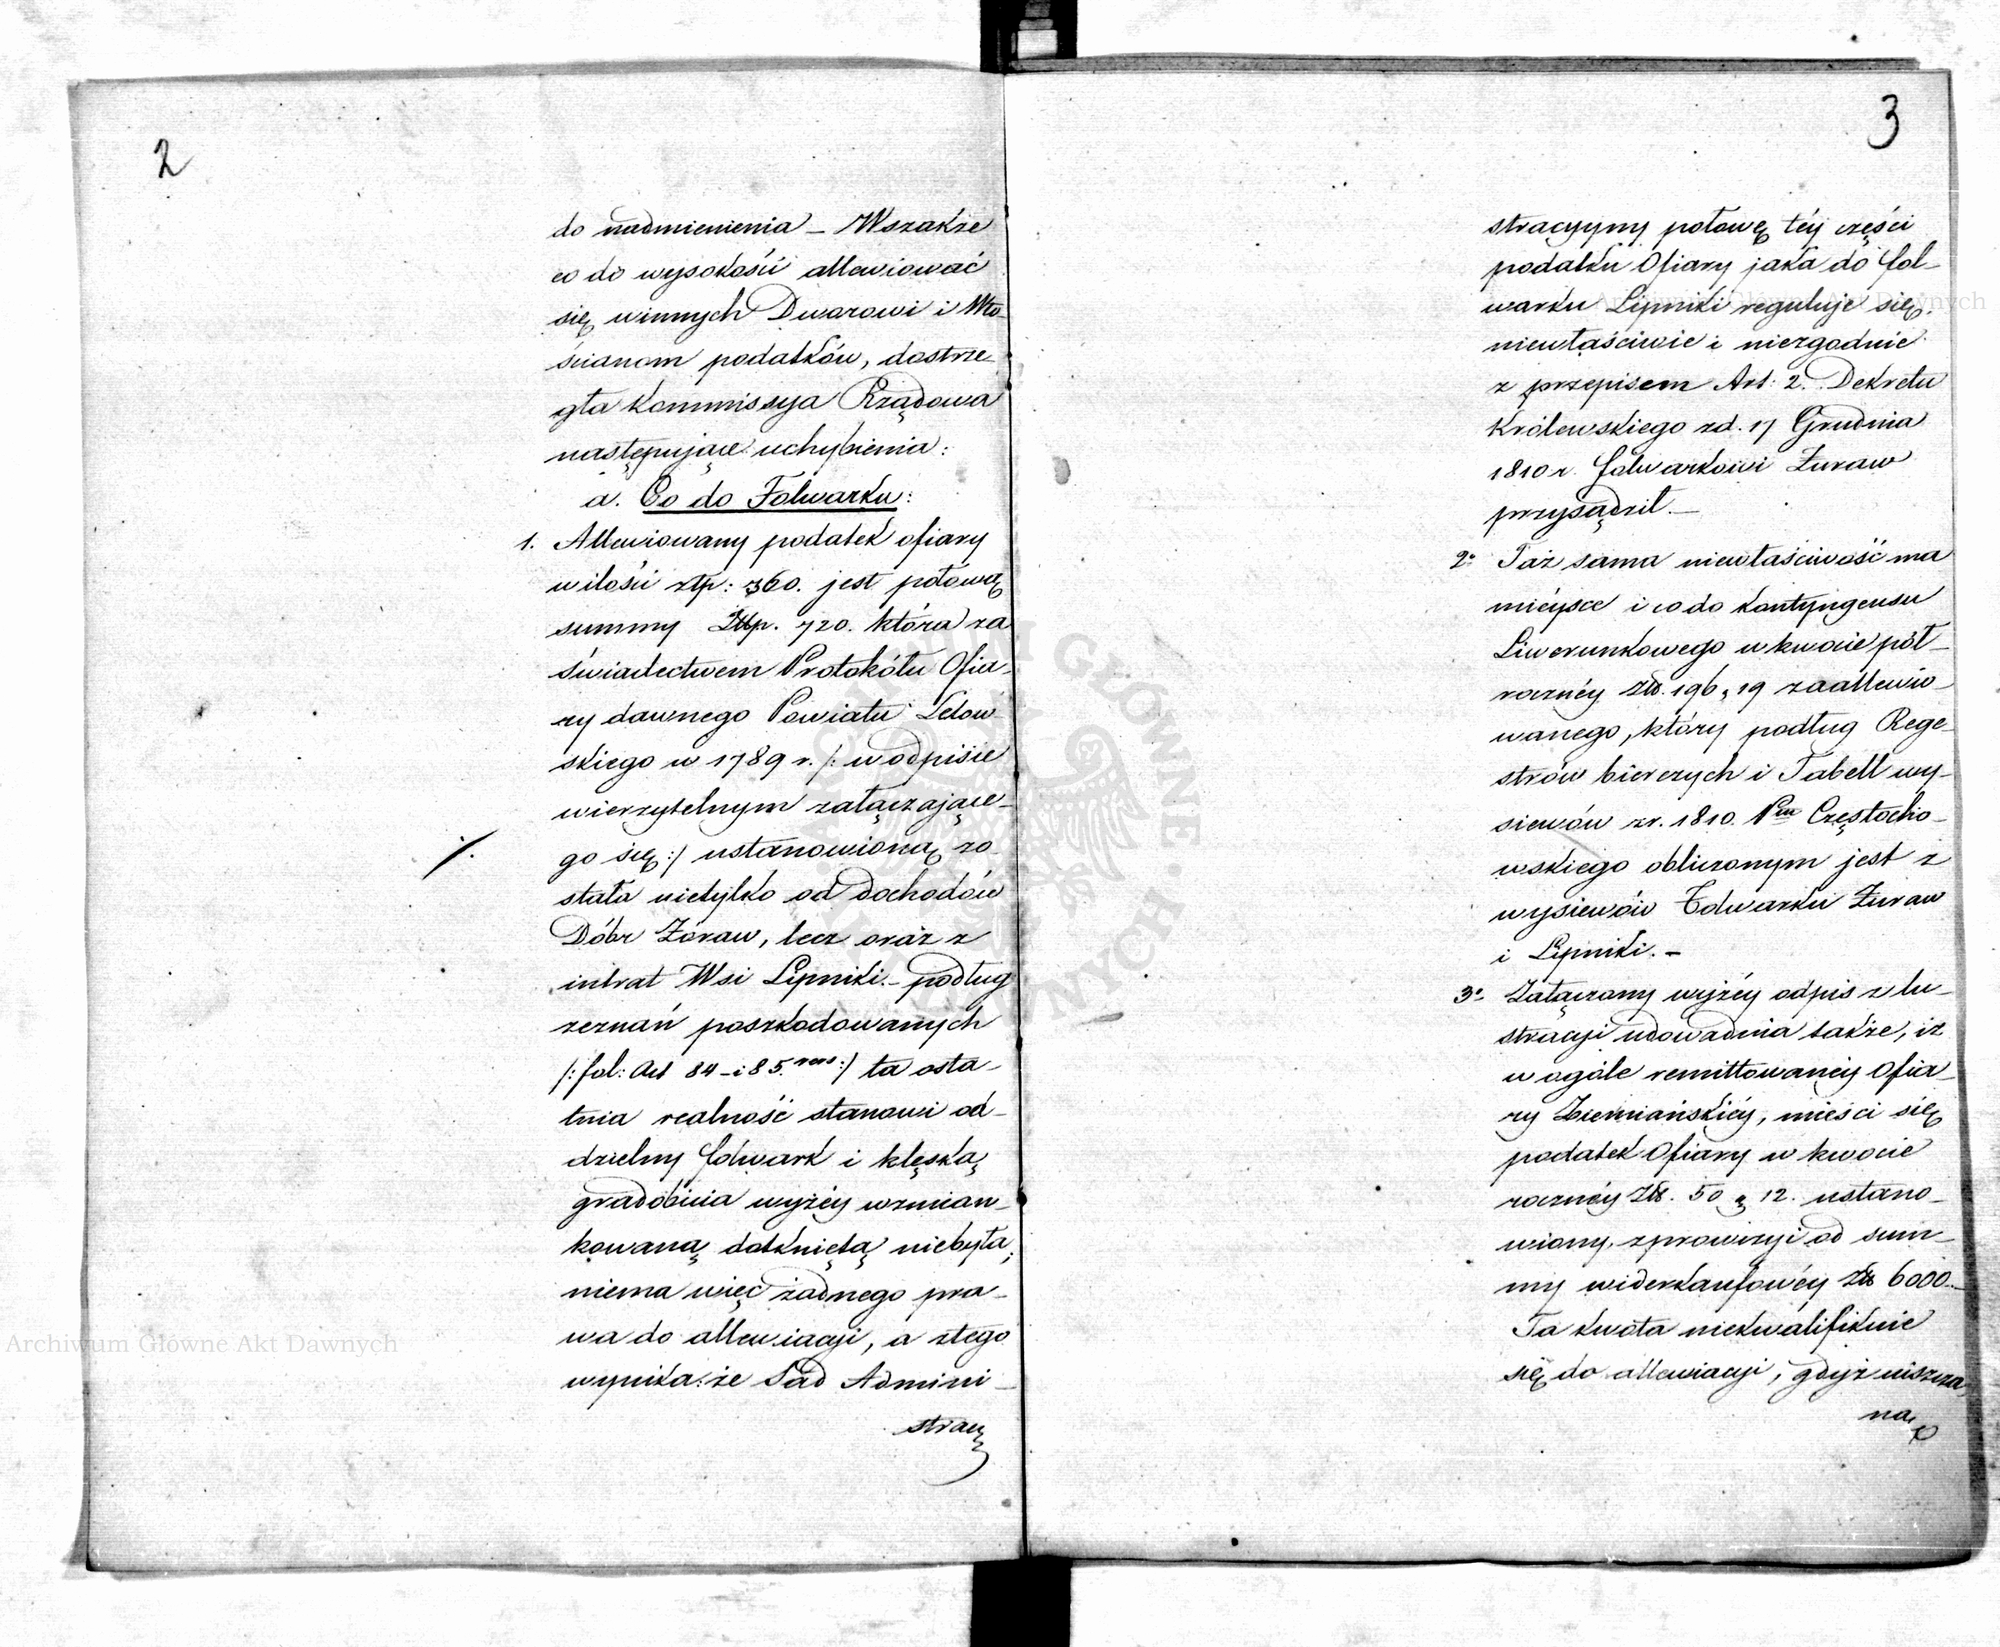 2
do nadmienienia – Wszakże
co do wysokości allewiować
się winnych Dworowi i Wło-
ścianom podatków, dostrze-
gła Kommissya Rządowa
następujące uchybienia:
a. Co do Folwarku:
1. Allewiowany podatek ofiary
w ilości złp: 360. jest połową
summy Złp. 720. która za
świadectwem Protokółu Ofia-
ry dawnego Powiatu Lelow-
skiego w 1789 r. /: w odpisie
wierzytelnym załączające-
go się :/ ustanowioną zo-
stała nietylko od dochodów
Dóbr Żóraw, lecz oraz z
intrat Wsi Lipniki. – podług
zeznań poszkodowanych
/: fol: Act 84 – i 85. vers :/ ta osta-
tnia realność stanowi od-
dzielny folwark i klęską
gradobicia wyżéy wzmian-
kowaną dotkniętą niebyła;
niema więc żadnego pra-
wa do allewiacyi, a ztego
wynika: że Sąd Admini-
stracy
3
stracyyny połowę téy części
podatku Ofiary jaka do fol-
warku Lipniki reguluje się.
niewłaściwie i niezgodnie
z przepisem Art: 2. Dekretu
Królewskiego zd. 17 Grudnia
1810 r. folwarkowi Żuraw
przysądził. –
2o Taż sama niewłaściwość ma
miéysce i co do Kontyngensu
Liwerunkowego w kwocie pół-
rocznéy Złł. 196, 19 zaallewio-
wanego, który podług Rege-
strów bierczych i Tabell wy-
siewów zr. 1810. Ptu Częstocho-
wskiego obliczonym jest z
wysiewów Folwarku Żuraw
i Lipniki. –
3o Załączony wyżéy odpis z lu-
stracyi udowadnia także, iż
w ogóle remittowanéy Ofia-
ry Ziemiańskiéy, mieści się
podatek Ofiary w kwocie
rocznéy Złł. 50 „ 12. ustano-
wiony, z prowizyi od sum-
my widerkaufowéy Złł 6000.–
Ta kwota niekwalifikuie
się do allewiacyi, gdyż uiszcza
na
Archiwum Główne Akt Dawnych
Archiwum Główne Akt Dawnych